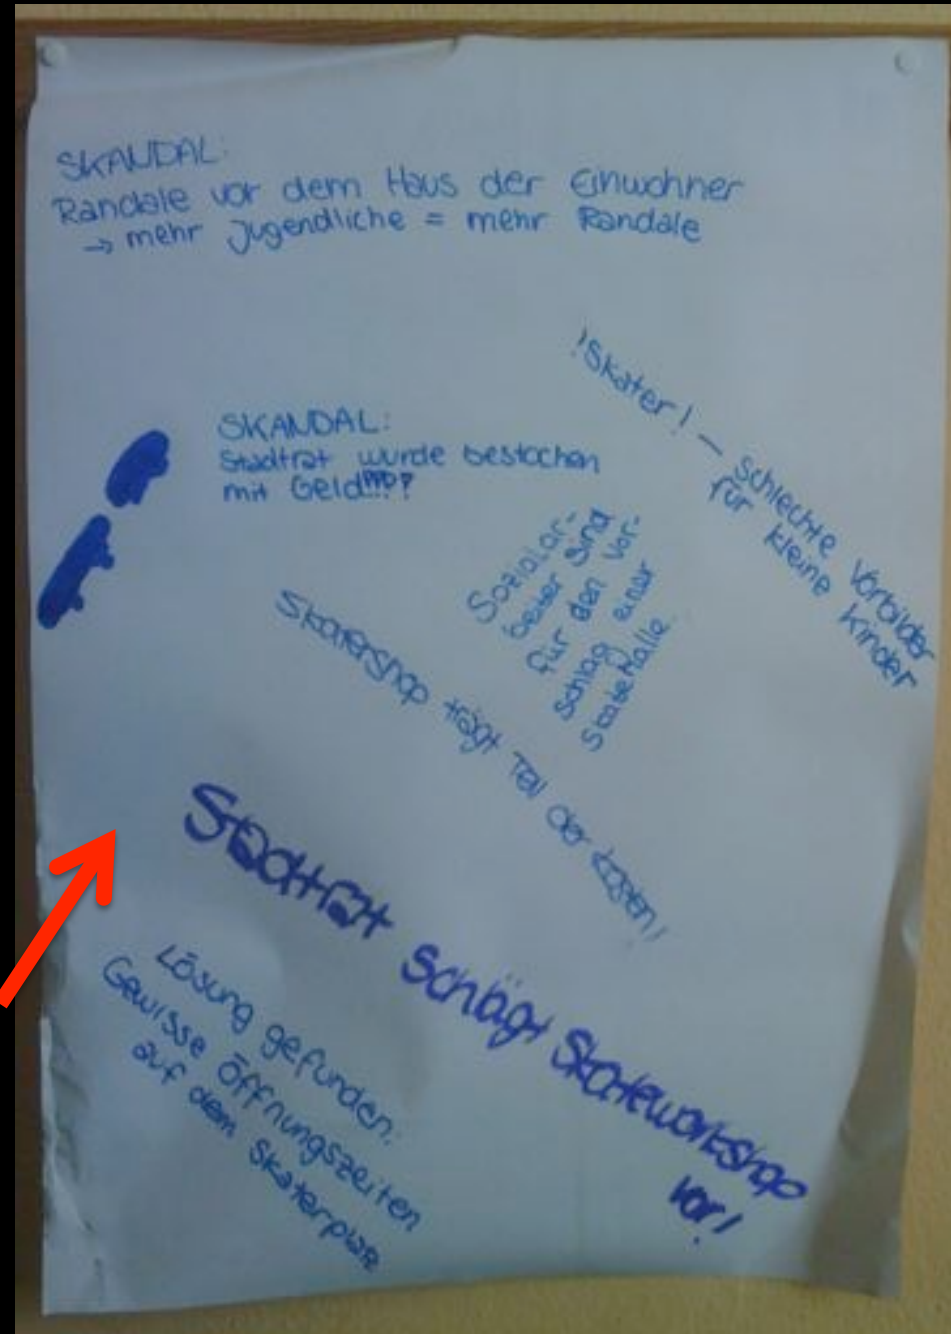 SKANDAL:
Randale vor dem Haus der Einwohner
→ mehr Jugendliche = mehr Randale
!Skater! – schlechte Vorbilder
für kleine Kinder
SKANDAL:
Stadtrat wurde bestochen
mit Geld!!!??
Sozialar-
beiter sind
für den Vor-
schlag einer
Skaterhalle
Skatershop trägt Teil der Kosten!
Stadtrat schlägt Skateworkshop
vor!
Lösung gefunden:
Gewisse Öffnungszeiten
auf dem Skaterplatz